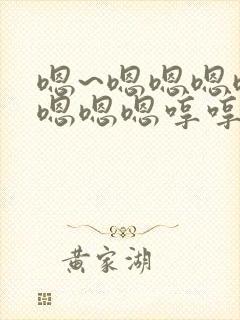 嗯~嗯嗯嗯
嗯嗯嗯哼哼
黄家湖